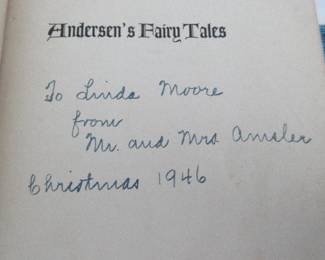 Andersen's Fairy Tales
To Linda Moore
from
Mr. and Mrs Amsler
Christmas 1946